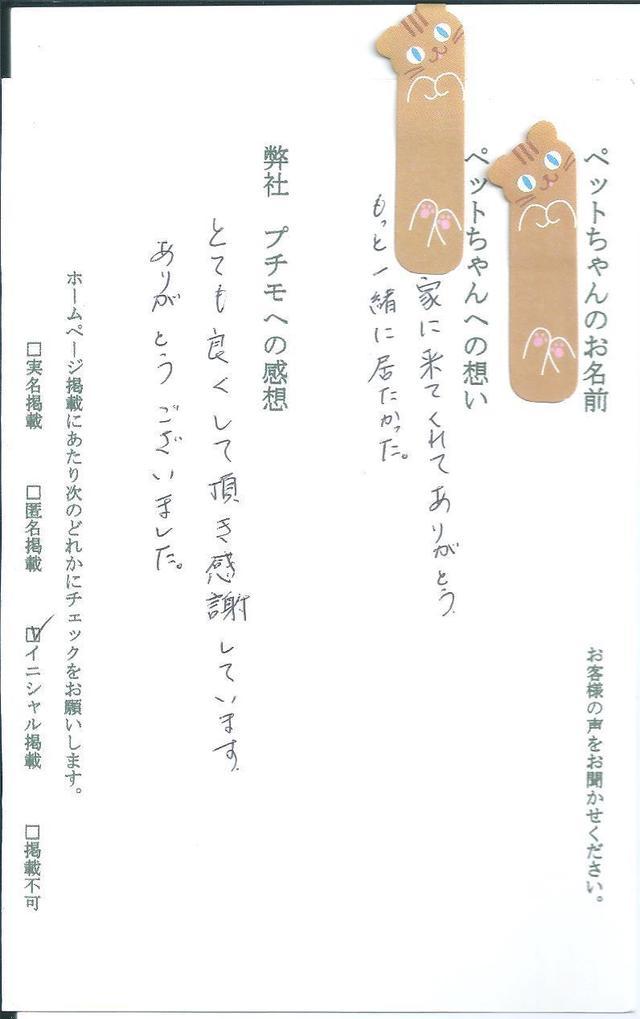 お客様の声をお聞かせください。
ペットちゃんのお名前
ペットちゃんへの想い
家に来てくれてありがとう
もっと一緒に居たかった。
弊社 プチモへの感想
とても良くして頂き感謝しています
ありがとうございました。
ホームページ掲載にあたり次のどれかにチェックをお願いします。
□実名掲載 □匿名掲載 ☑イニシャル掲載 □掲載不可